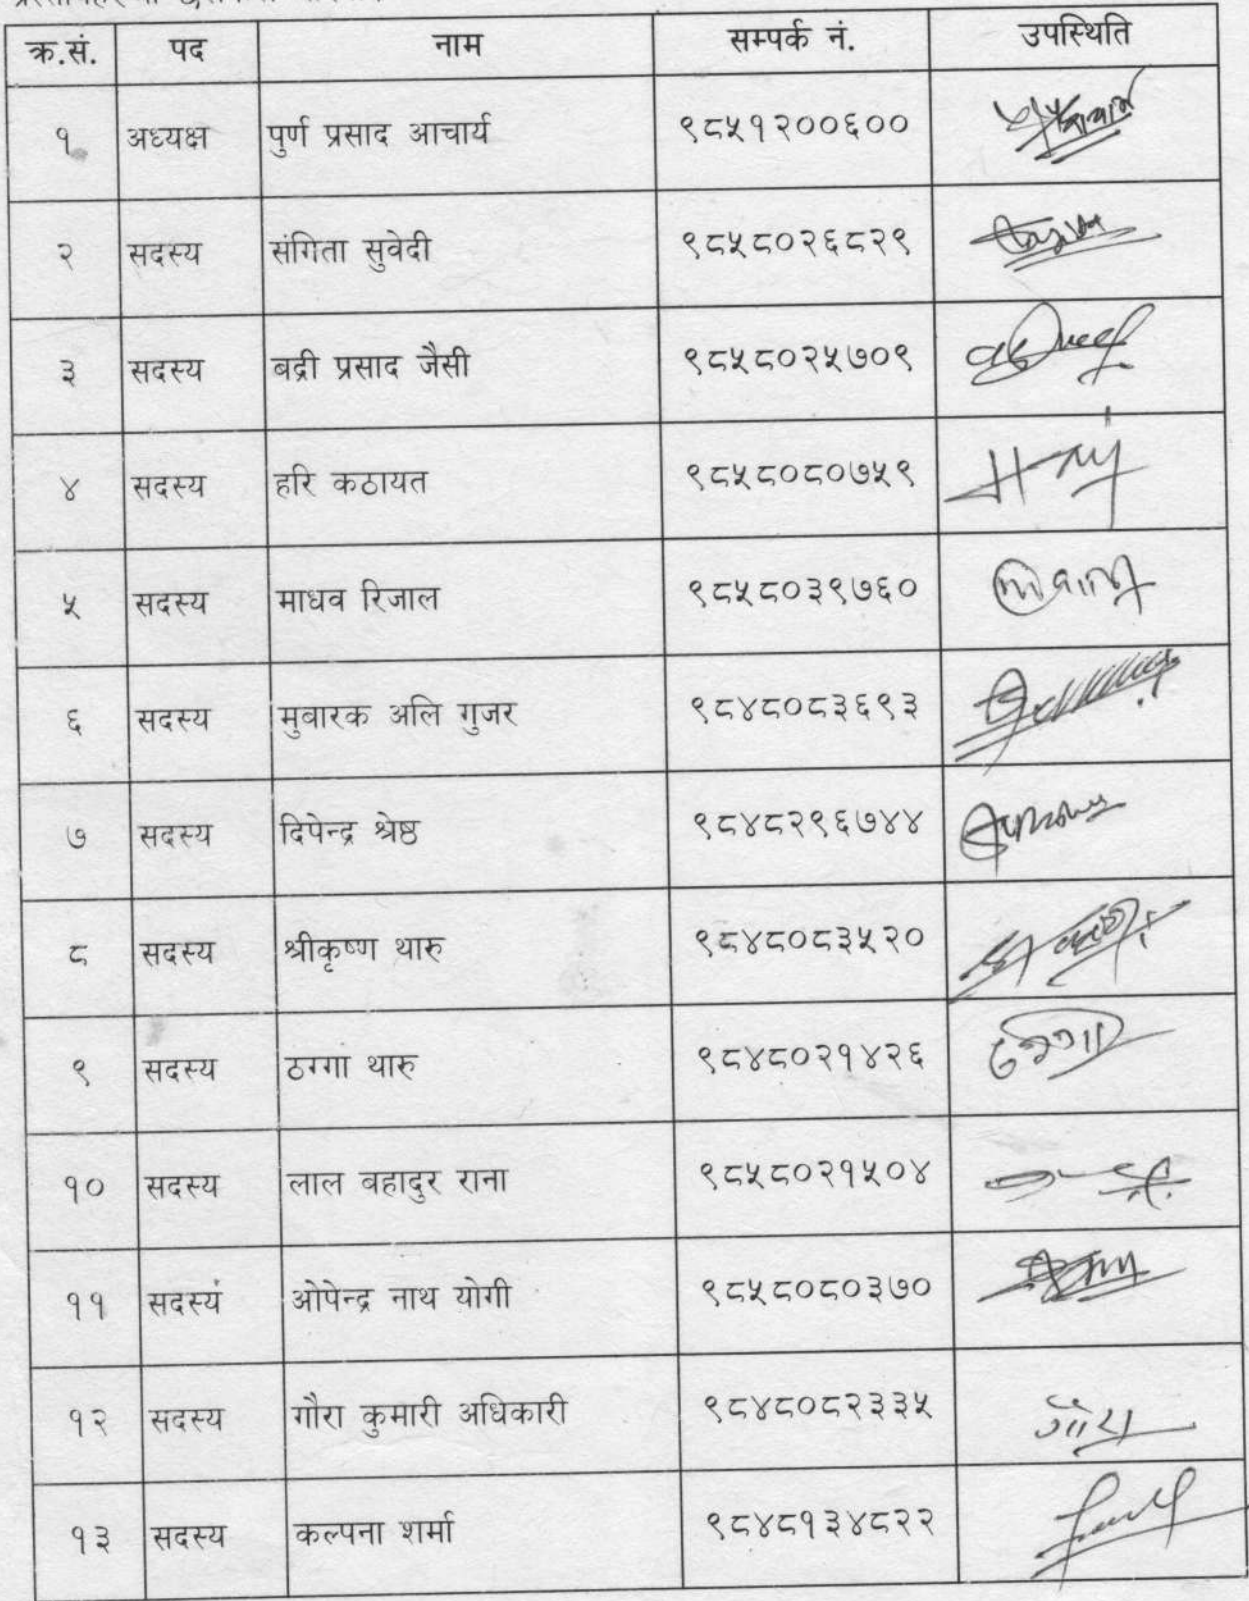 क्र.सं. पद नाम सम्पर्क नं. उपस्थिति
१ अध्यक्ष पुर्ण प्रसाद आचार्य ९८५१२००६००
२ सदस्य संगिता सुवेदी ९८५८०२६८२९
३ सदस्य बद्री प्रसाद जैसी ९८५८०२५७०९
४ सदस्य हरि कठायत ९८५८०८०७५९
५ सदस्य माधव रिजाल ९८५८०३९७६०
६ सदस्य मुबारक अलि गुजर ९८४८०८३६९३
७ सदस्य दिपेन्द्र श्रेष्ठ ९८४८२९६७४४
८ सदस्य श्रीकृष्ण थारु ९८४८०८३५२०
९ सदस्य ठग्गा थारु ९८४८०२१४२६
१० सदस्य लाल बहादुर राना ९८५८०२१५०४
११ सदस्य ओपेन्द्र नाथ योगी ९८५८०८०३७०
१२ सदस्य गौरा कुमारी अधिकारी ९८४८०८२३३५ गौरा
१३ सदस्य कल्पना शर्मा ९८४८१३४८२२